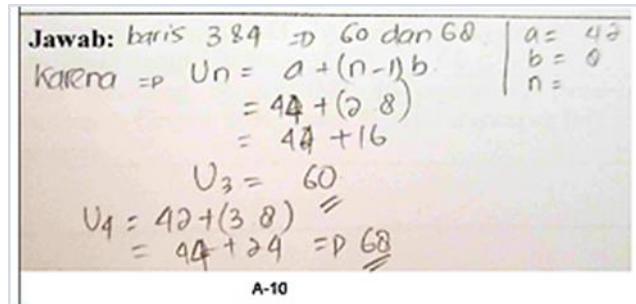 Jawab: baris 3 & 4 => 60 dan 68
a = 42
Karena => Un = a + (n-1) b.
b = 8
n =
= 44 + (2 . 8)
= 44 + 16
U3 = 60
U4 = 42 + (3 8)
= 44 + 24 => 68
A-10